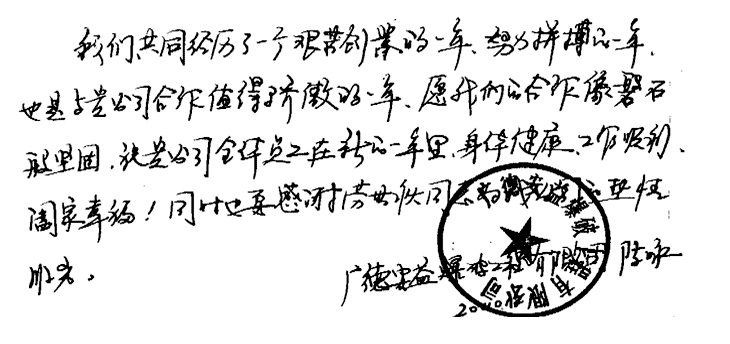 我们共同经历了一个艰苦创业的一年、努力拼搏的一年、
也是与贵公司合作值得骄傲的一年、愿我们的合作像磐石
般坚固,祝贵公司全体员工在新的一年里,身体健康、工作顺利、
阖家幸福!同时也要感谢 同 的热忱
服务。
广德 益爆破工程有限公司 陈